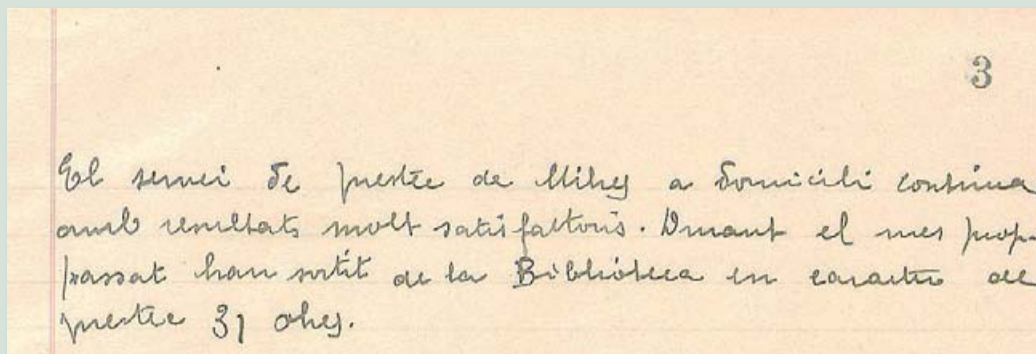 3
El servei de prestec de llibres a domicili continua
amb resultats molt satisfactoris. Durant el mes prop-
passat han sortit de la Biblioteca en caracter de
prestec 31 obres.